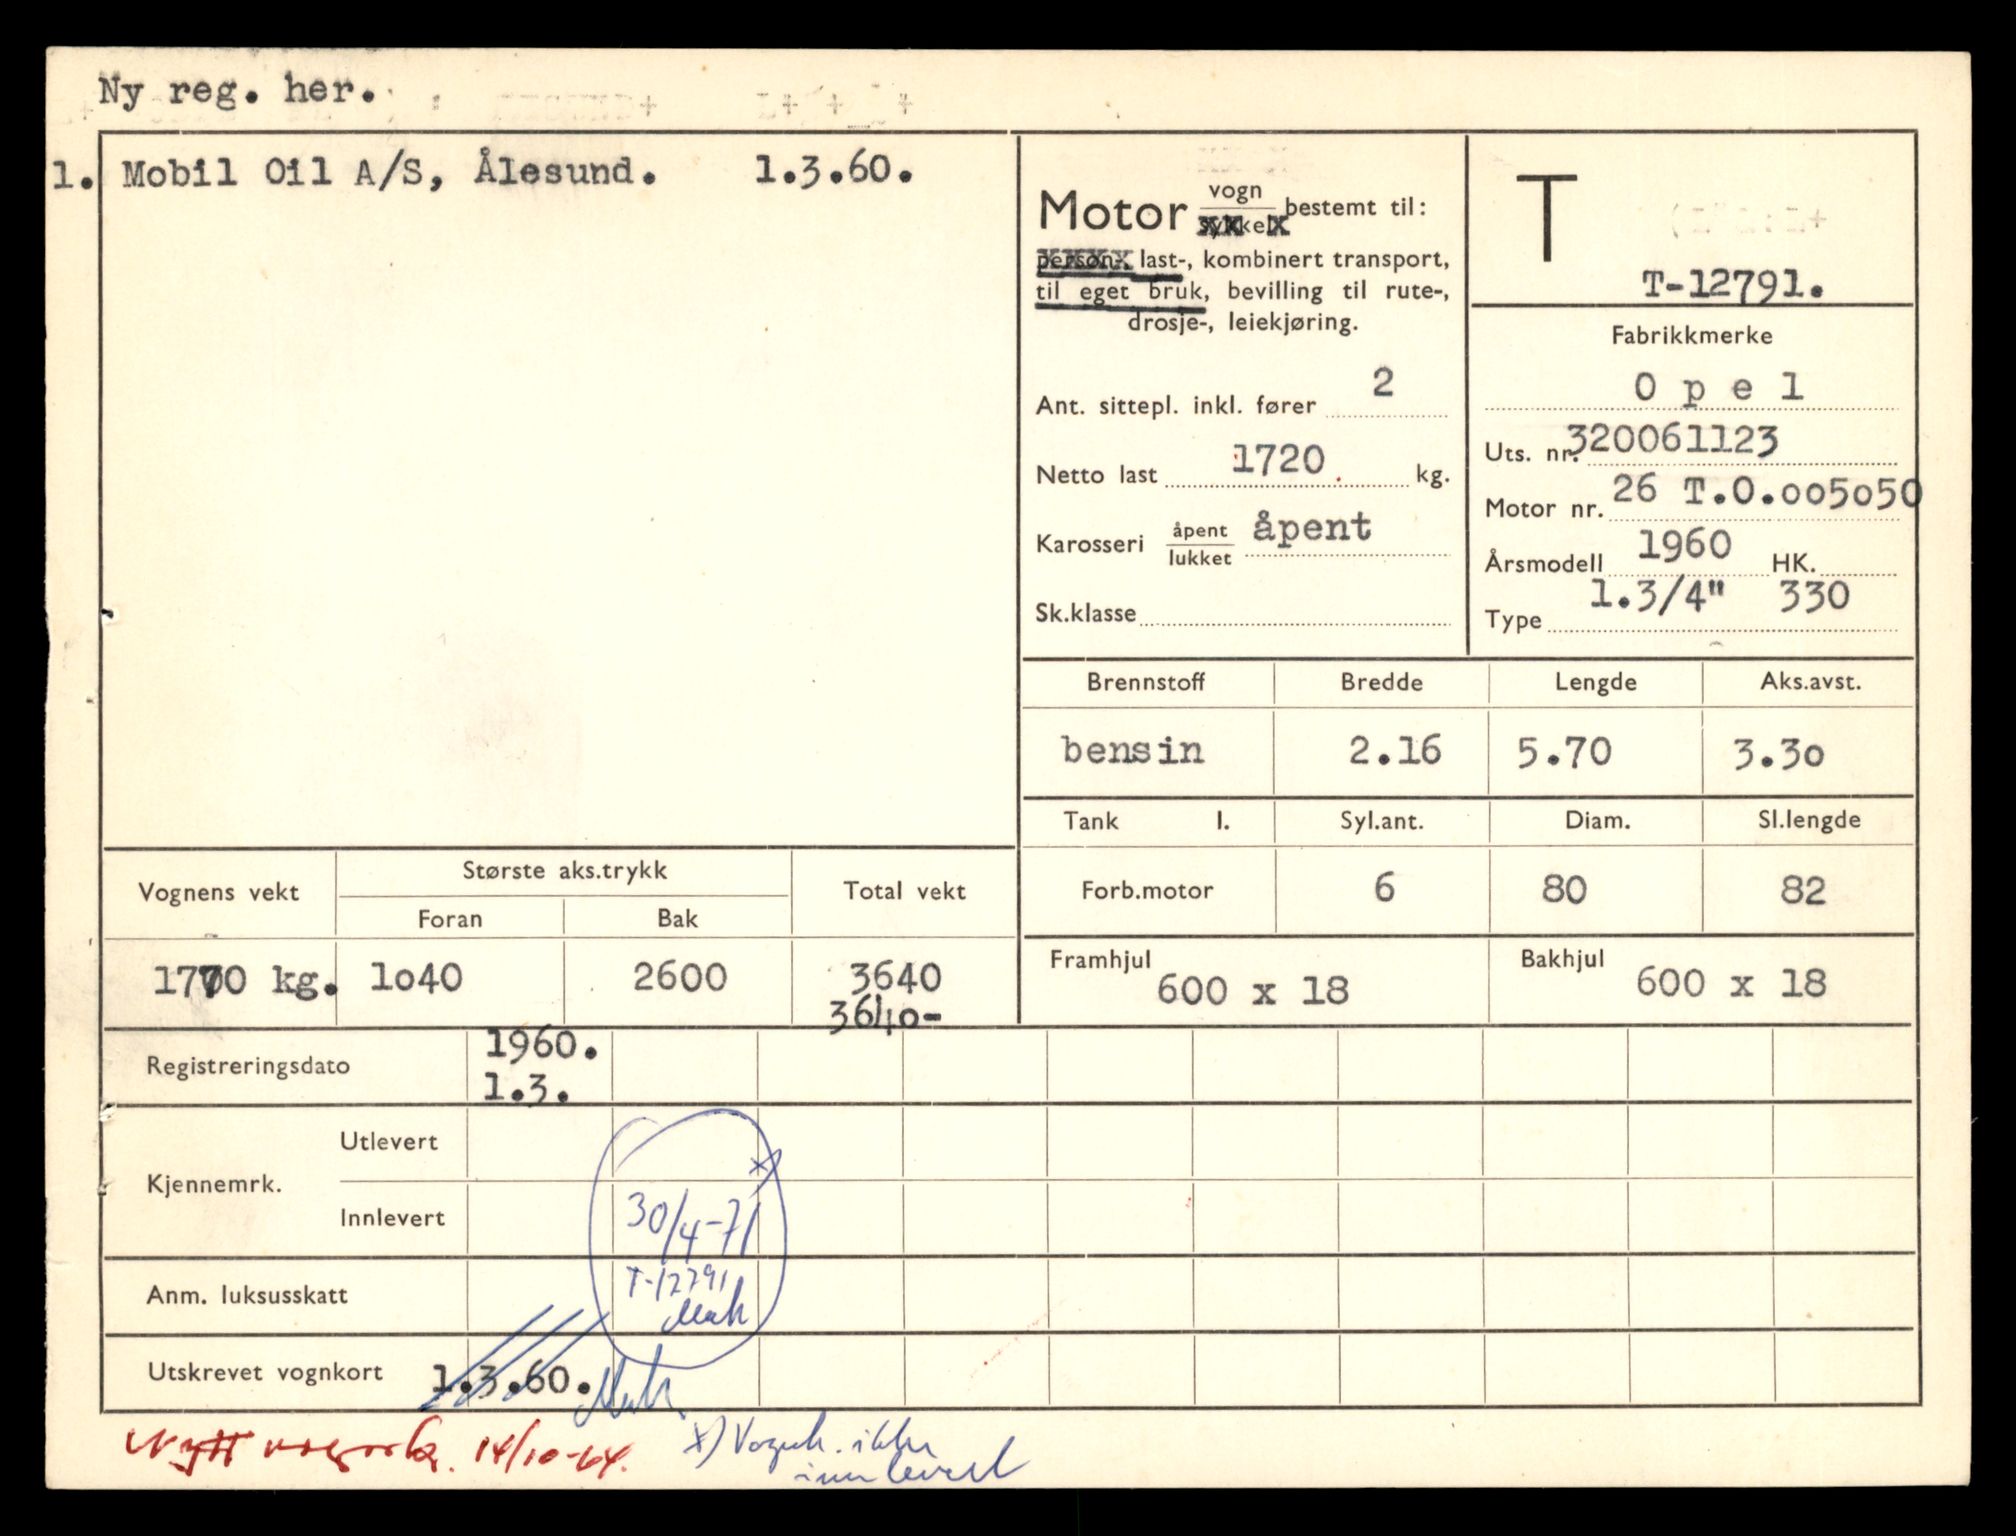 Ny reg. her.
1. Mobil Oil A/S, Ålesund. 1.3.60.
Motor vogn
sykkel bestemt til:
person- last-, kombinert transport,
til eget bruk, bevilling til rute-,
drosje-, leiekjøring.
Ant. sittepl. inkl. fører 2
Netto last 1720 kg.
Karosseri åpent
lukket åpent
Sk.klasse
T
T-12791.
Fabrikkmerke
Opel
Uts. nr. 320061123
Motor nr. 26 T.O.005050
Årsmodell 1960 HK.
Type 1.3/4" 330
Brennstoff Bredde Lengde Aks.avst.
bensin 2.16 5.70 3.30
Tank l. Syl.ant. Diam. Sl.lengde
Forb.motor 6 80 82
Framhjul 600 x 18 Bakhjul 600 x 18
Vognens vekt Største aks.trykk Total vekt
Foran Bak
1770 kg. 1040 2600 3640
3640-
Registreringsdato 1960.
1.3.
Kjennemrk. Utlevert x)
Innlevert 30/4-71
Anm. luksusskatt T-12791
Utskrevet vognkort 1.3.60.
Nytt vognk. 14/10-64.
x) Vognk. ikke
innlevert